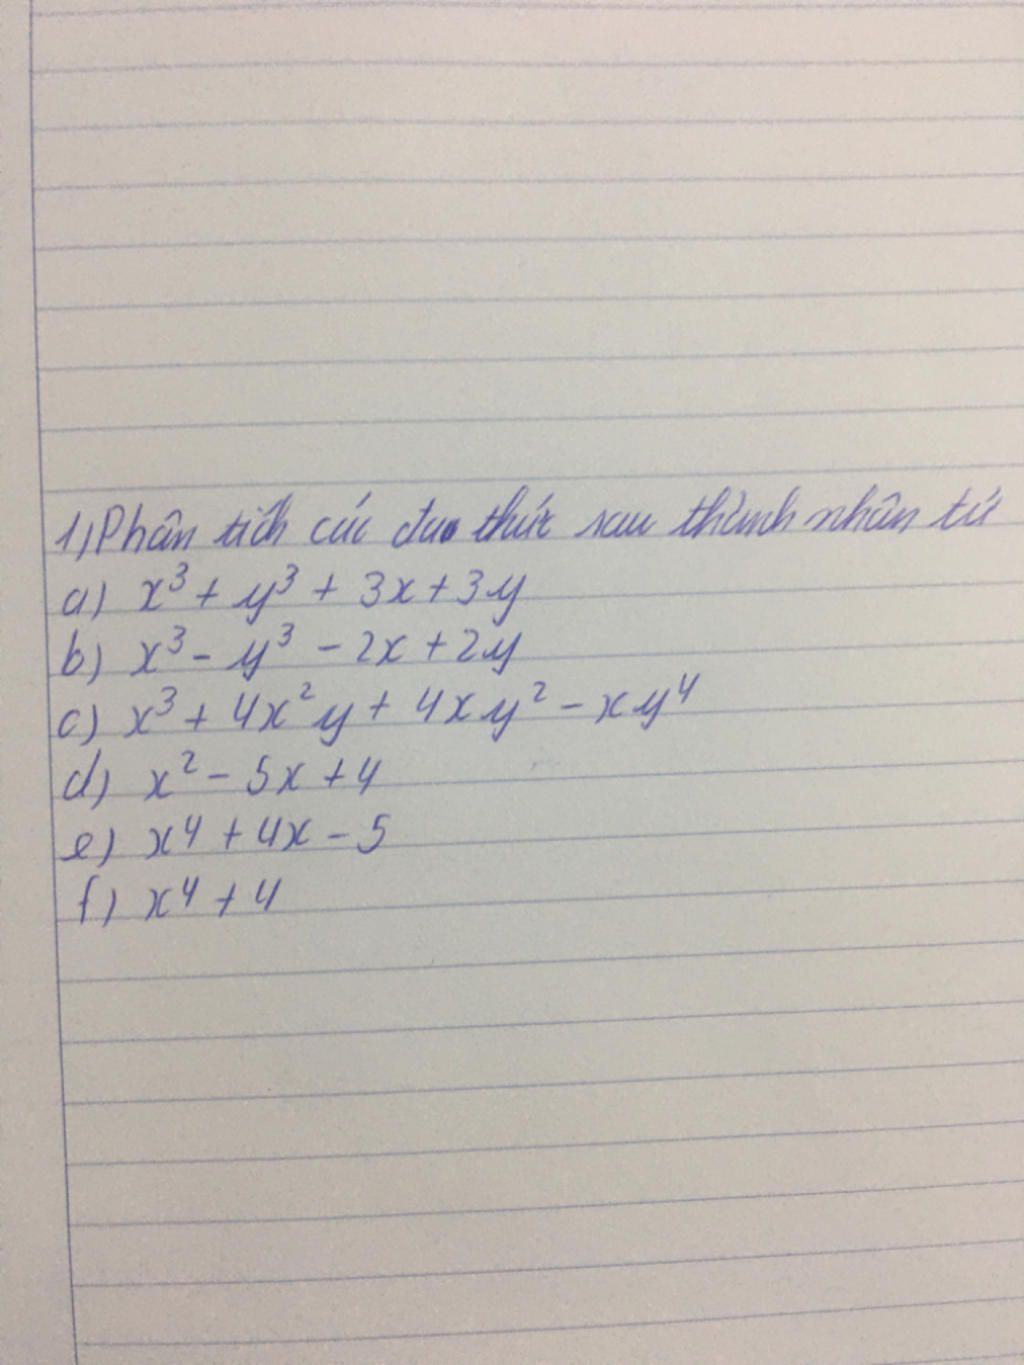 1) Phân tích các đa thức sau thành nhân tử
a) x³ + y³ + 3x + 3y
b) x³ - y³ - 2x + 2y
c) x³ + 4x²y + 4xy² - xy⁴
d) x² - 5x + 4
e) x⁴ + 4x - 5
f) x⁴ + 4